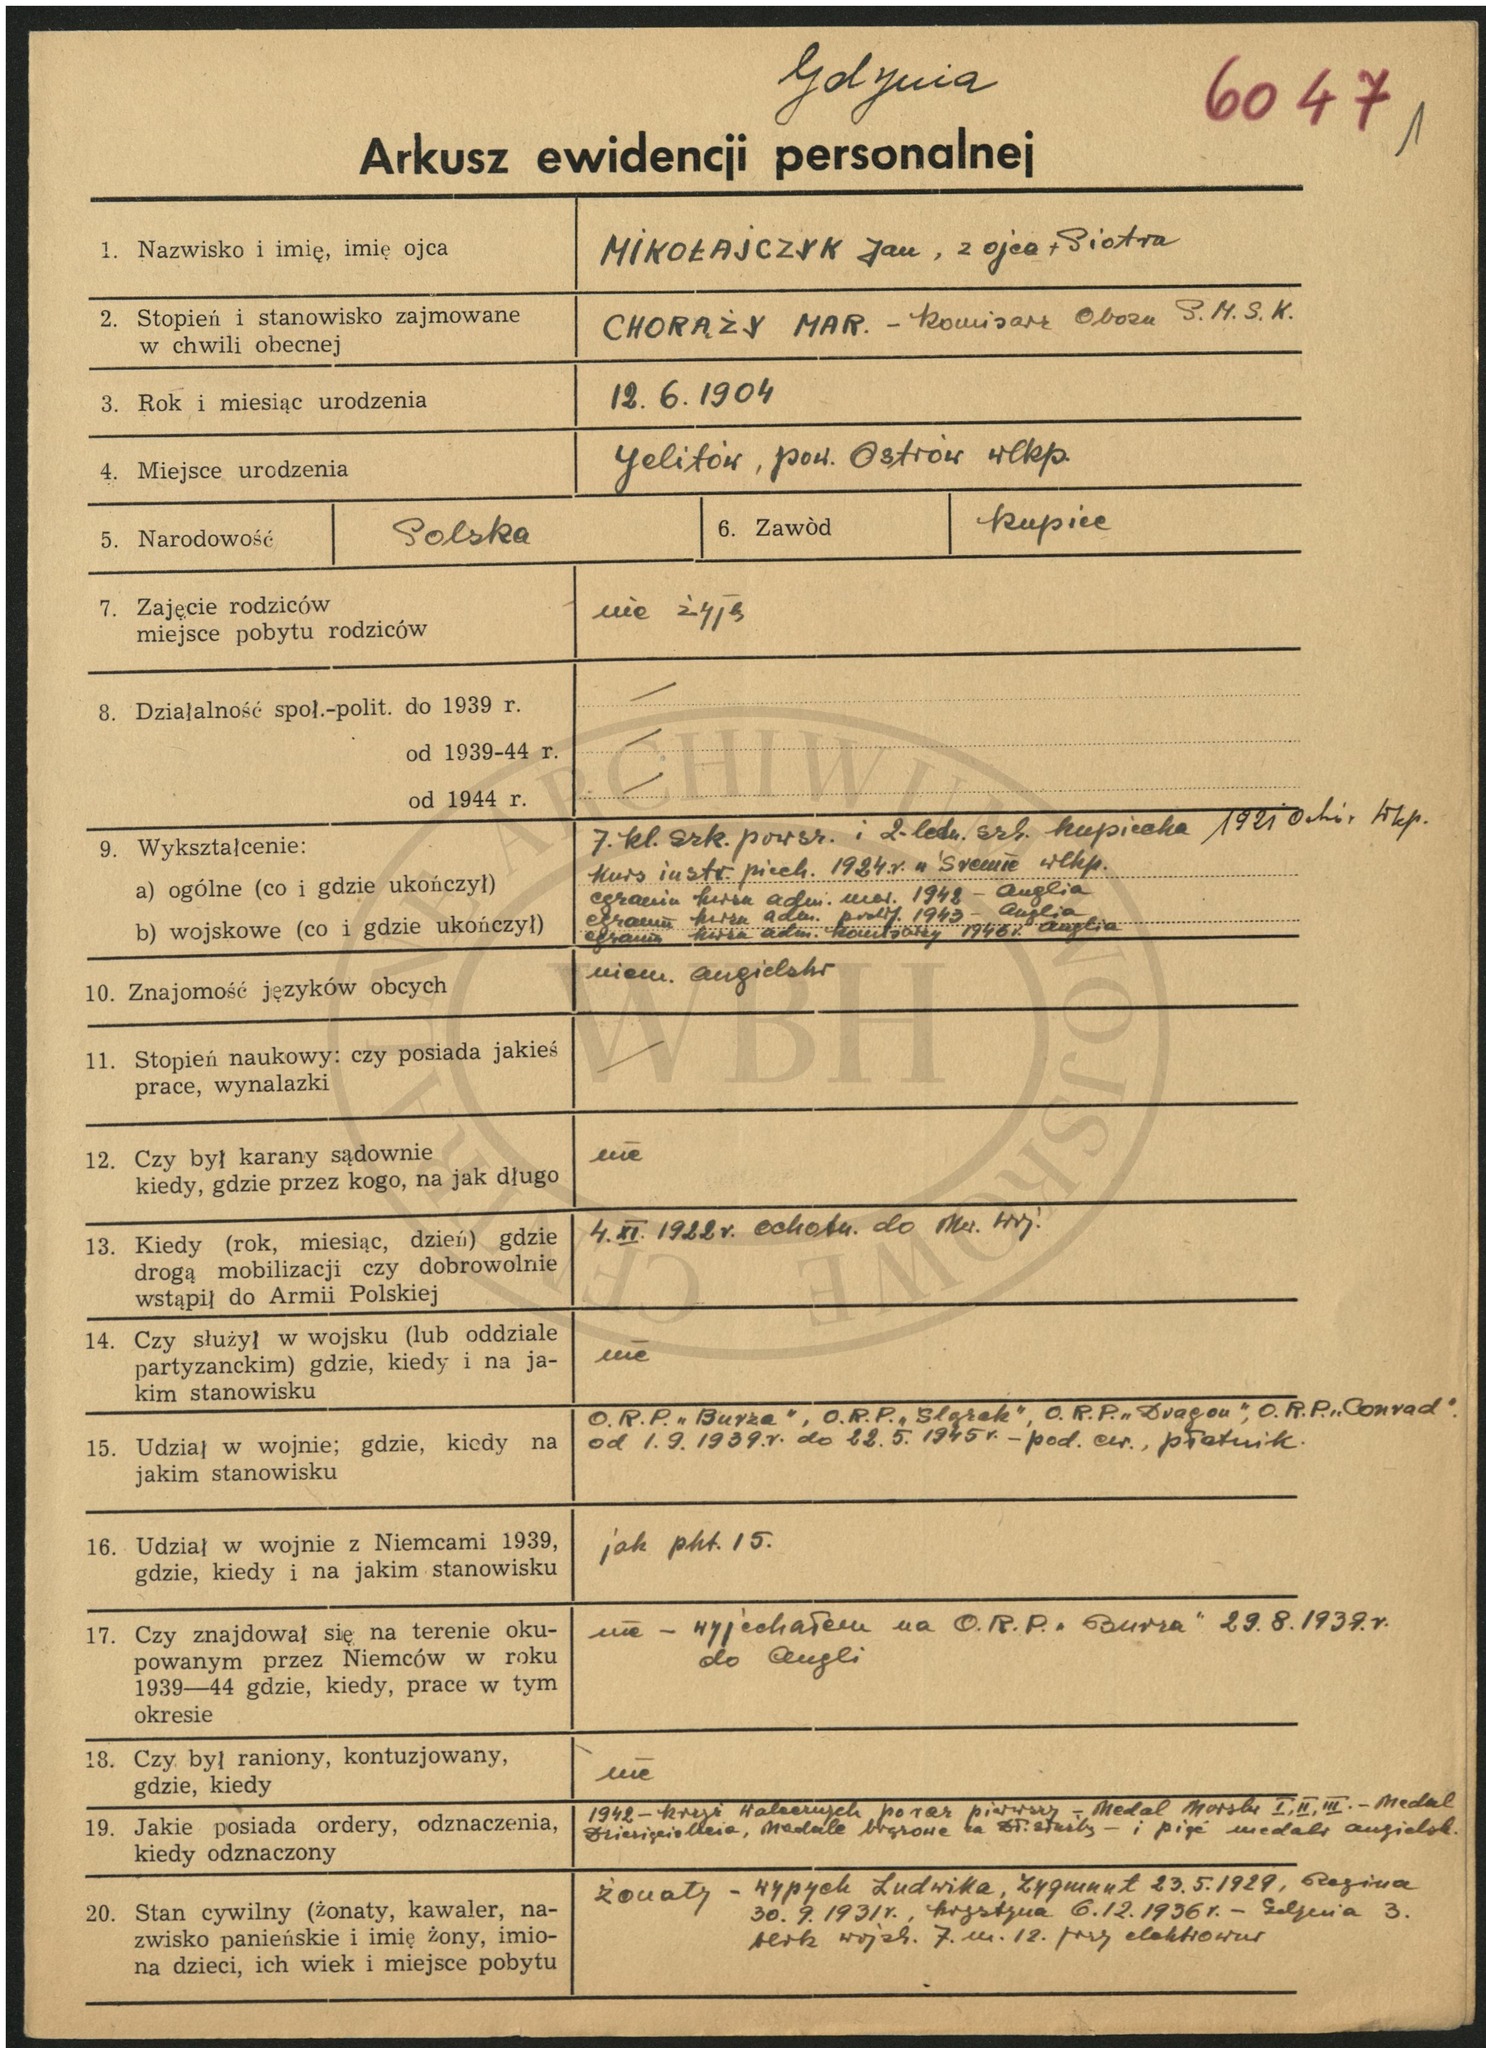 Gdynia
6047
1
Arkusz ewidencji personalnej
1. Nazwisko i imię, imię ojca
MIKOŁAJCZYK Jan, z ojca + Piotra
2. Stopień i stanowisko zajmowane
w chwili obecnej
CHORĄŻY MAR. - Komisarz Obozu P.M.S.K.
3. Rok i miesiąc urodzenia
12.6.1904
4. Miejsce urodzenia
Jelitów, pow. Ostrów wlkp.
5. Narodowość
Polska
6. Zawòd
kupiec
7. Zajęcie rodziców
miejsce pobytu rodziców
nie żyją
8. Działalność społ.-polit. do 1939 r.
od 1939-44 r.
od 1944 r.
9. Wykształcenie:
a) ogólne (co i gdzie ukończył)
b) wojskowe (co i gdzie ukończył)
7. kl. szk. powsz. i 2-letn. szk. kupiecka 1921 Wkp.
Kurs instr. piech. 1924 r. w Śremie wlkp.
egzamin kursu adm. mar. 1942 - Anglia
egzamin kursu adm. podof. 1943 - Anglia
egzamin kursu adm. 1945 r. Anglia
10. Znajomość języków obcych
niem. angielski
11. Stopień naukowy: czy posiada jakieś
prace, wynalazki
12. Czy był karany sądownie
kiedy, gdzie przez kogo, na jak długo
nie
13. Kiedy (rok, miesiąc, dzień) gdzie
drogą mobilizacji czy dobrowolnie
wstąpił do Armii Polskiej
4.XI. 1922 r. ochotn. do Mar. Woj.
14. Czy służył w wojsku (lub oddziale
partyzanckim) gdzie, kiedy i na ja-
kim stanowisku
nie
15. Udział w wojnie; gdzie, kiedy na
jakim stanowisku
O.R.P. „Burza", O.R.P. „Ślązak", O.R.P. „Dragon", O.R.P. „Conrad".
od 1.9.1939.r. do 22.5.1945 r. - pod. ew., płatnik.
16. Udział w wojnie z Niemcami 1939,
gdzie, kiedy i na jakim stanowisku
jak pkt. 15.
17. Czy znajdował się na terenie oku-
powanym przez Niemców w roku
1939—44 gdzie, kiedy, prace w tym
okresie
nie - wyjechałem na O.R.P. „Burza" 29.8.1939.r.
do Angli
18. Czy był raniony, kontuzjowany,
gdzie, kiedy
nie
19. Jakie posiada ordery, odznaczenia,
kiedy odznaczony
1942 - krzyż Walecznych poraz pierwszy - Medal Morski I, II, III. - Medal
Dziesięciolecia, Medale brązowe za Dł. służby - i pięć medali angielsk.
20. Stan cywilny (żonaty, kawaler, na-
zwisko panieńskie i imię żony, imio-
na dzieci, ich wiek i miejsce pobytu
żonaty - Wypych Ludwika, Zygmunt 23.5.1929, Regina
30.9.1931 r., Krystyna 6.12.1936 r. - Gdynia 3.
blok wojsk. 7. m. 12. przy elektrowni
CENTRALNE ARCHIWUM WOJSKOWE
WBH